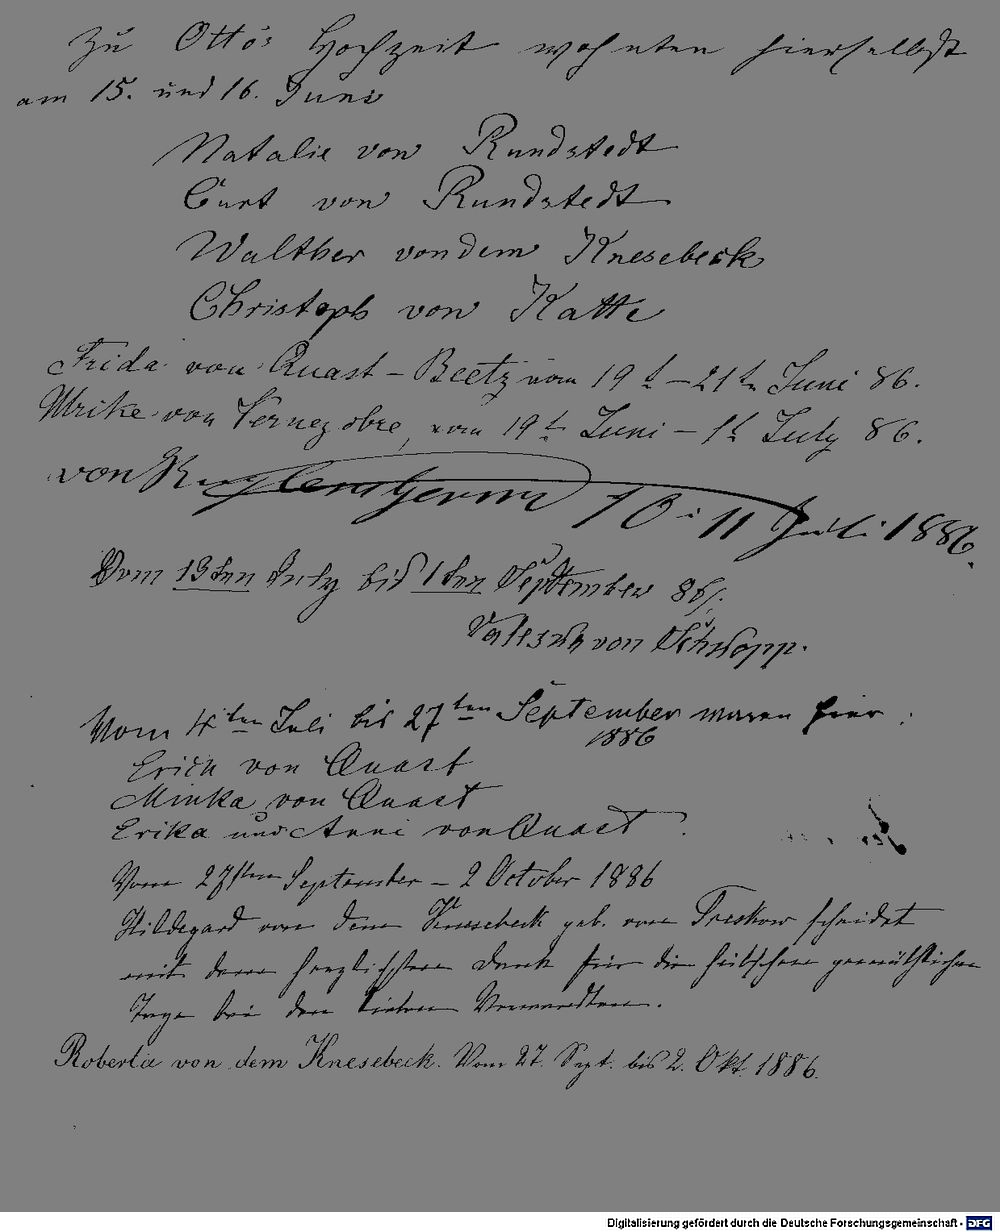 Zu Otto's Hochzeit wohnten hierselbst
am 15. und 16. Juni
Natalie von Rundstedt
Curt von Rundstedt
Walther von dem Knesebeck
Christoph von Katte
Frida von Quast – Beetz vom 19t – 21tn Juni 86.
Ulrike von Vernezobre, vom 19t Juni – 1t July 86.
von 10 i 11 Juli 1886.
Vom 13ten July bis 1ten September 86.
Valeska von Schwopp.
Vom 4ten Juli bis 27ten September waren hier:
1886
Erich von Quast
Minka von Quast
Erika und Anni von Quast.
Vom 27sten September – 2 October 1886
Hildegard von dem Knesebeck geb. von Treskow scheidet
mit dem herzlichsten Dank für die hübschen gemüthlichen
Tage bei den lieben Verwandten.
Roberta von dem Knesebeck. Vom 27. Sept. bis 2. Okt. 1886.
Digitalisierung gefördert durch die Deutsche Forschungsgemeinschaft - DFG